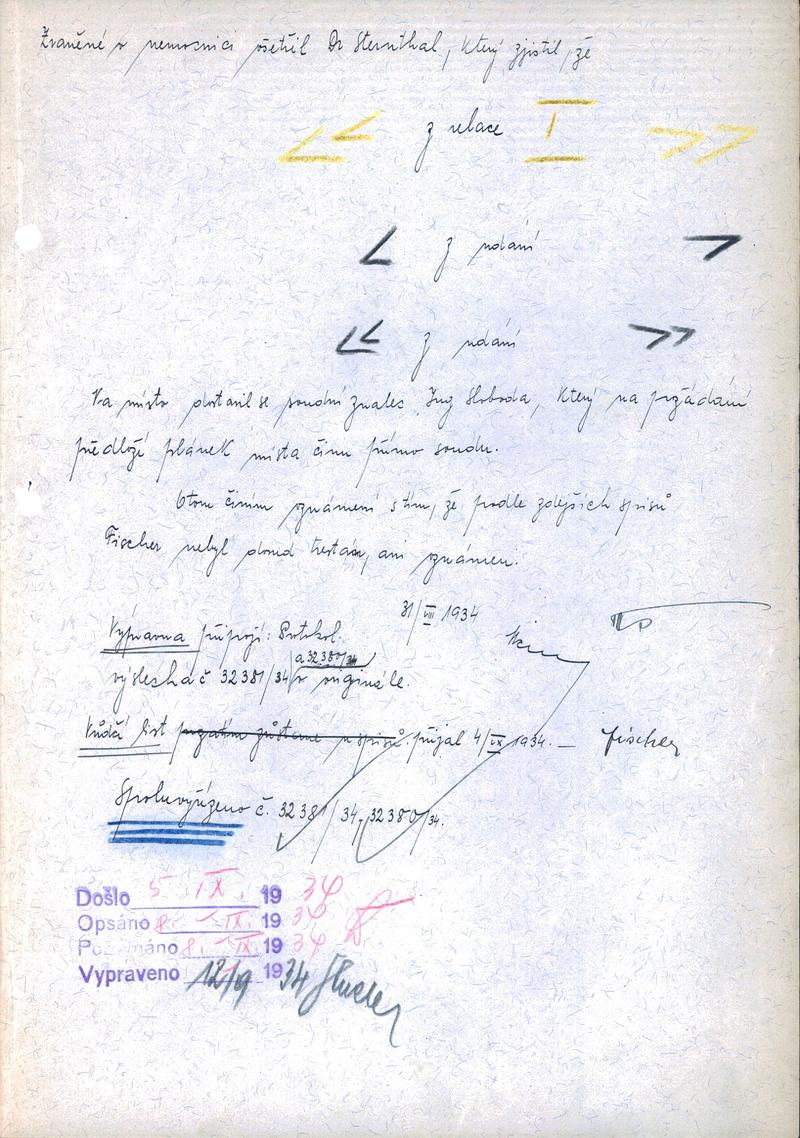 Zraněné v nemocnici ošetřil Dr Sternthal, který zjistil, že
<< z relace I >>
< z udání >
<< z udání >>
Na místo dostavil se soudní znalec Ing Sloboda, který na požádání
předloží plánek místa činu přímo soudu.
O tom činím oznámení s tím, že podle zdejších spisů
Fischer nebyl dosud trestán, ani oznámen.
31/VIII 1934
Výpravna připojí: Protokol.
a 32380/34
výslecha č 32381/34 v originále.
Řidičí list prozatím zůstane u spisů. přijal 4/IX 1934. — Fischer
Spoluvyřízeno č. 32381/34, 32380/34.
Došlo 5. IX. 1934
Opsáno 8. IX. 1934
Porovnáno 8. IX. 1934
Vypraveno 12/9 1934